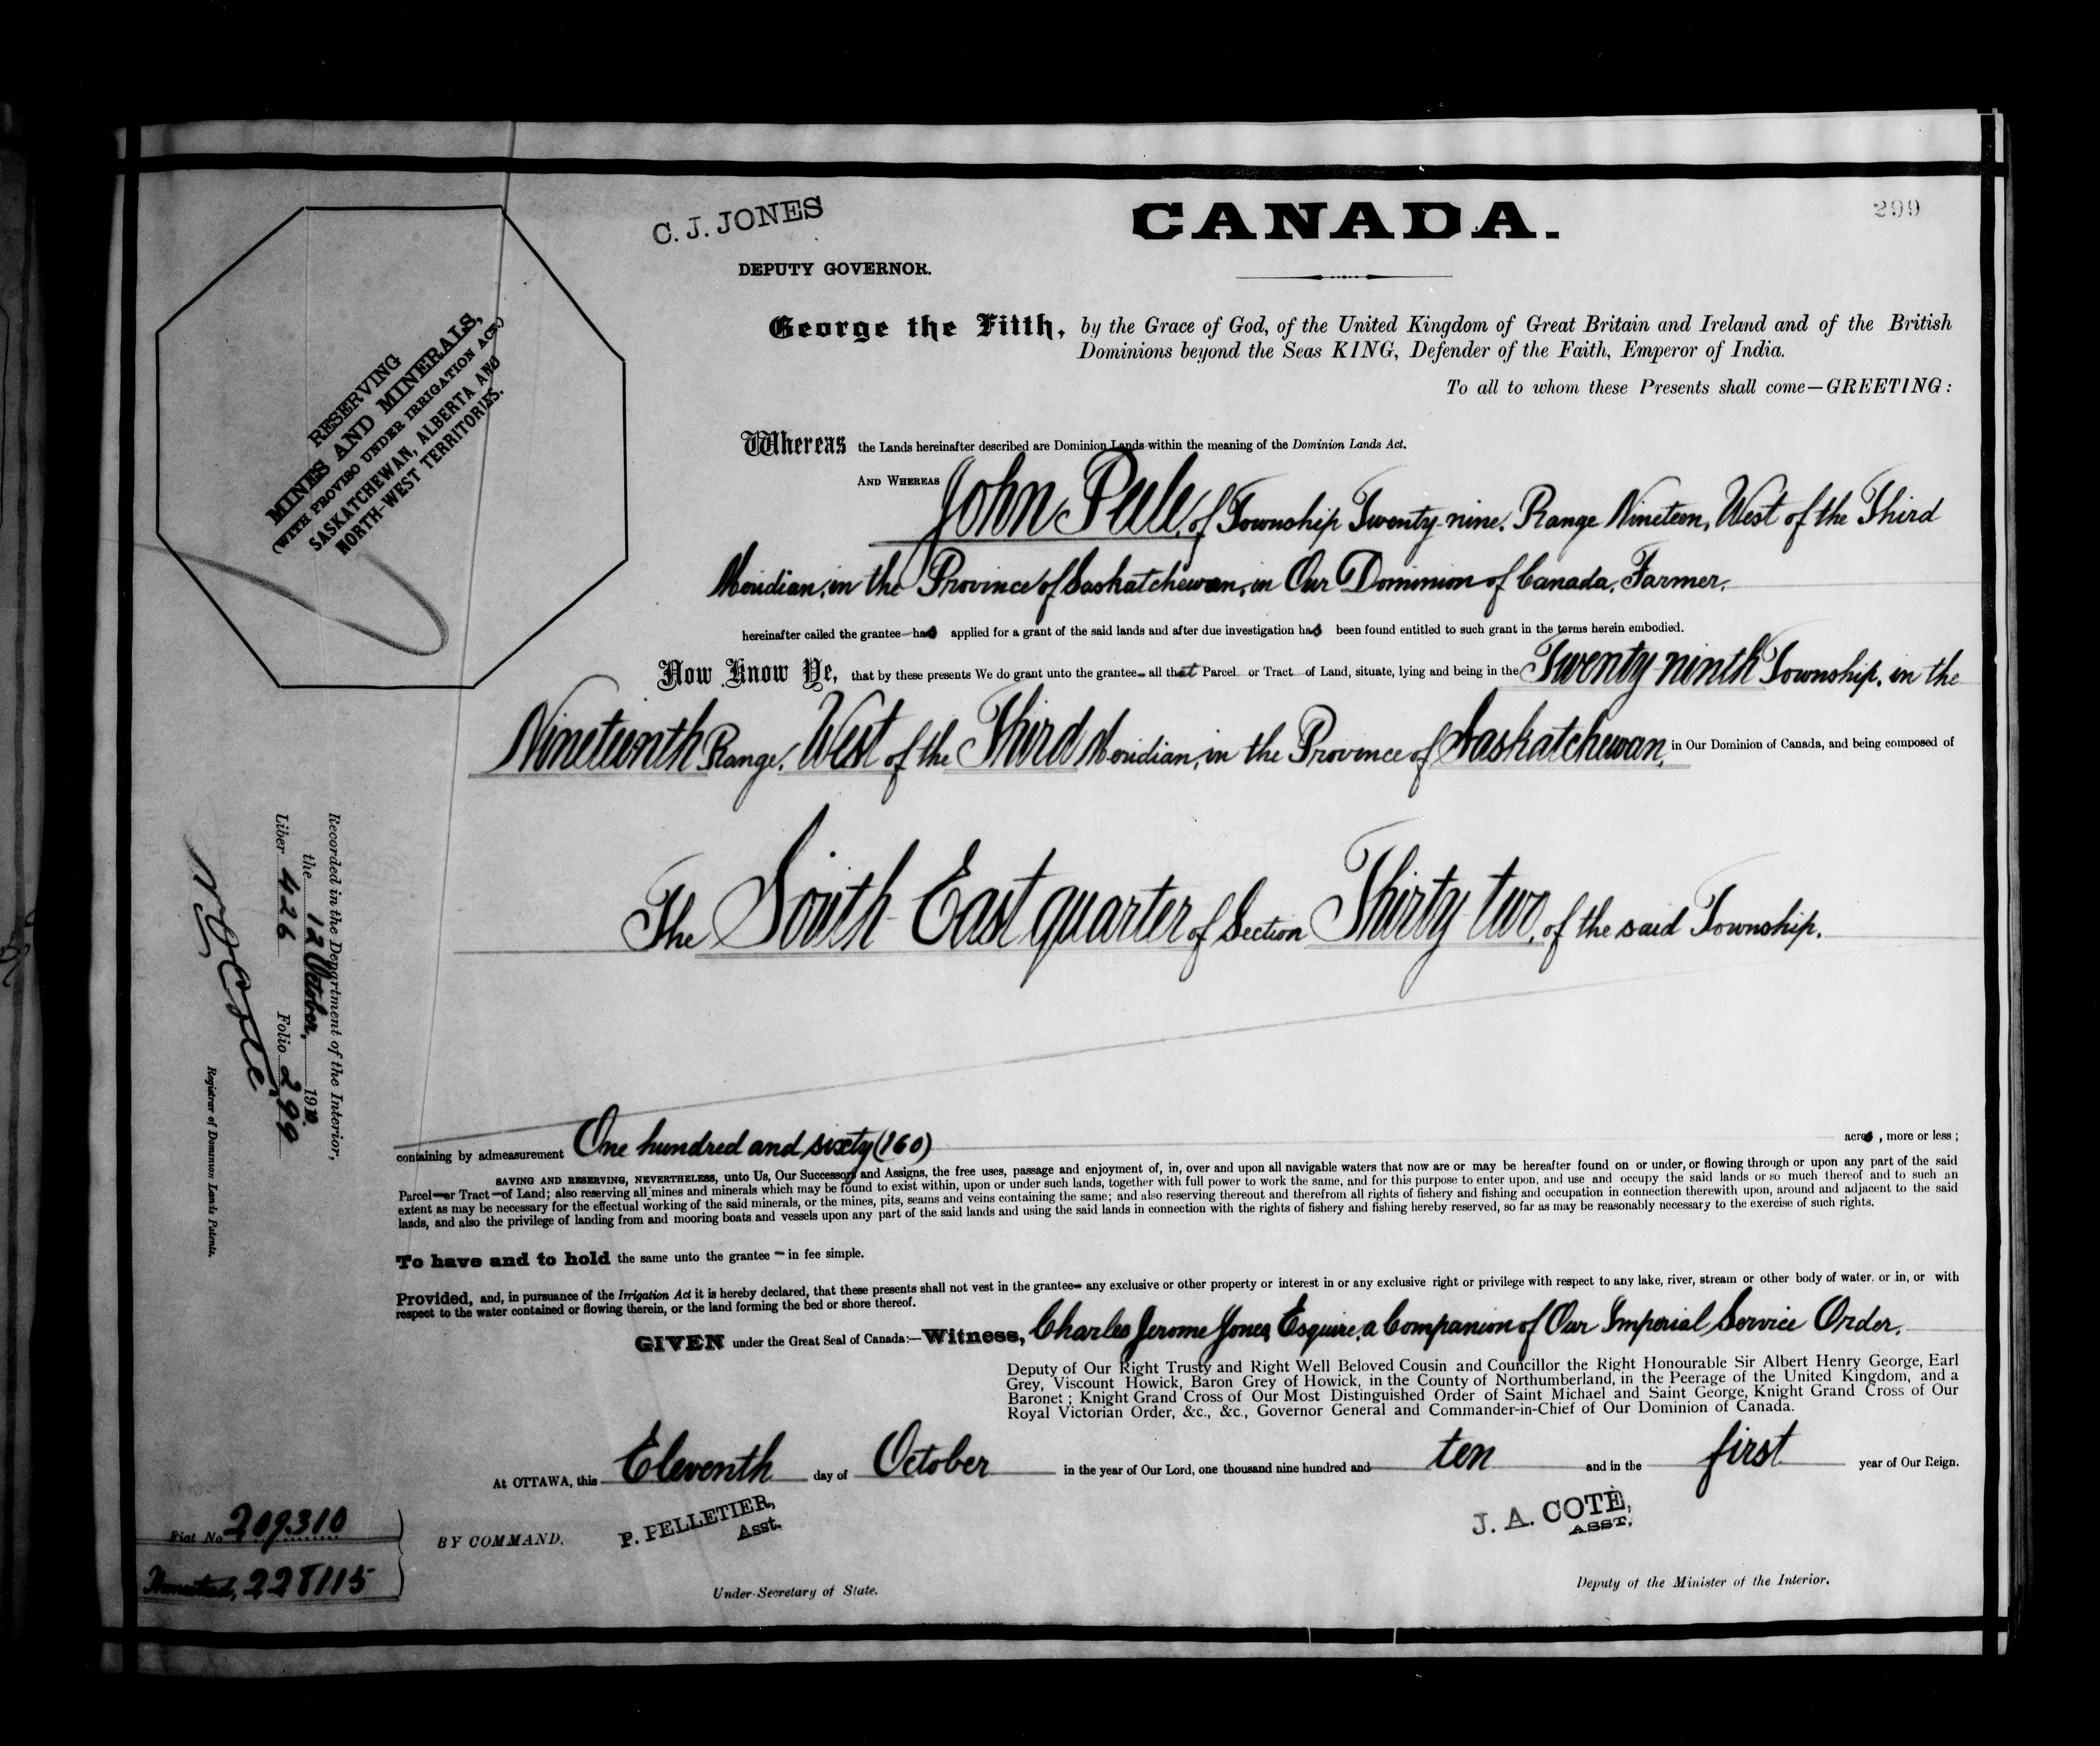 299
C. J. JONES
CANADA.
DEPUTY GOVERNOR.
RESERVING
MINES AND MINERALS,
(WITH PROVISO UNDER IRRIGATION ACT.)
SASKATCHEWAN, ALBERTA AND
NORTH-WEST TERRITORIES.
George the Fifth, by the Grace of God, of the United Kingdom of Great Britain and Ireland and of the British
Dominions beyond the Seas KING, Defender of the Faith, Emperor of India.
To all to whom these Presents shall come—GREETING:
Whereas the Lands hereinafter described are Dominion Lands within the meaning of the Dominion Lands Act.
AND WHEREAS John Peele, of Township Twenty-nine, Range Nineteen, West of the Third
Meridian, in the Province of Saskatchewan, in Our Dominion of Canada, Farmer,
hereinafter called the grantee—has applied for a grant of the said lands and after due investigation has been found entitled to such grant in the terms herein embodied.
Now Know Ye, that by these presents We do grant unto the grantee— all that Parcel or Tract of Land, situate, lying and being in the Twenty-ninth Township, in the
Nineteenth Range, West of the Third Meridian, in the Province of Saskatchewan, in Our Dominion of Canada, and being composed of
The South East quarter of Section Thirty two, of the said Township,
Recorded in the Department of the Interior,
the 12 October, 1910.
Liber 426 Folio 299
Registrar of Dominion Lands Patents.
containing by admeasurement One hundred and sixty (160) acres, more or less;
SAVING AND RESERVING, NEVERTHELESS, unto Us, Our Successors and Assigns, the free uses, passage and enjoyment of, in, over and upon all navigable waters that now are or may be hereafter found on or under, or flowing through or upon any part of the said
Parcel—or Tract—of Land; also reserving all mines and minerals which may be found to exist within, upon or under such lands, together with full power to work the same, and for this purpose to enter upon, and use and occupy the said lands or so much thereof and to such an
extent as may be necessary for the effectual working of the said minerals, or the mines, pits, seams and veins containing the same; and also reserving thereout and therefrom all rights of fishery and fishing and occupation in connection therewith upon, around and adjacent to the said
lands, and also the privilege of landing from and mooring boats and vessels upon any part of the said lands and using the said lands in connection with the rights of fishery and fishing hereby reserved, so far as may be reasonably necessary to the exercise of such rights.
To have and to hold the same unto the grantee — in fee simple.
Provided, and, in pursuance of the Irrigation Act it is hereby declared, that these presents shall not vest in the grantee— any exclusive or other property or interest in or any exclusive right or privilege with respect to any lake, river, stream or other body of water, or in, or with
respect to the water contained or flowing therein, or the land forming the bed or shore thereof.
GIVEN under the Great Seal of Canada:—Witness, Charles Jerome Jones, Esquire, a Companion of Our Imperial Service Order,
Deputy of Our Right Trusty and Right Well Beloved Cousin and Councillor the Right Honourable Sir Albert Henry George, Earl
Grey, Viscount Howick, Baron Grey of Howick, in the County of Northumberland, in the Peerage of the United Kingdom, and a
Baronet; Knight Grand Cross of Our Most Distinguished Order of Saint Michael and Saint George, Knight Grand Cross of Our
Royal Victorian Order, &c., &c., Governor General and Commander-in-Chief of Our Dominion of Canada.
At OTTAWA, this Eleventh day of October in the year of Our Lord, one thousand nine hundred and ten and in the first year of Our Reign.
Fiat No 209310
Homestead, 228115
BY COMMAND,
P. PELLETIER,
Asst.
Under-Secretary of State.
J. A. COTE,
ASST.
Deputy of the Minister of the Interior.